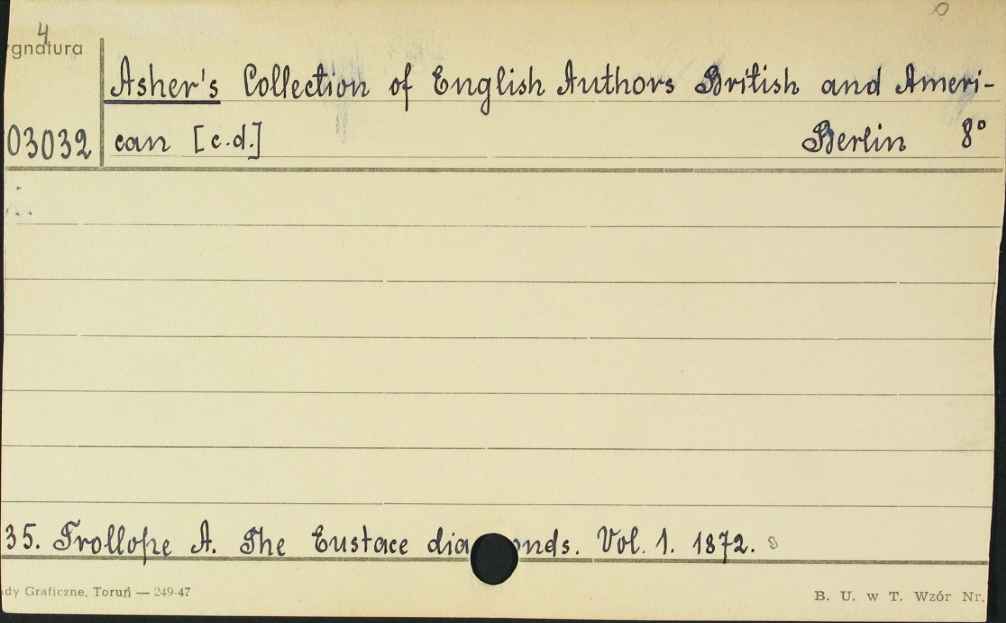 4
gnatura
Asher's Collection of English Authors British and Ameri-
03032 can [c.d.] Berlin 8°
35. Trollope A. The Eustace dia nds. Vol. 1. 1872. 8
dy Graficzne, Toruń — 249-47 B. U. w T. Wzór Nr.